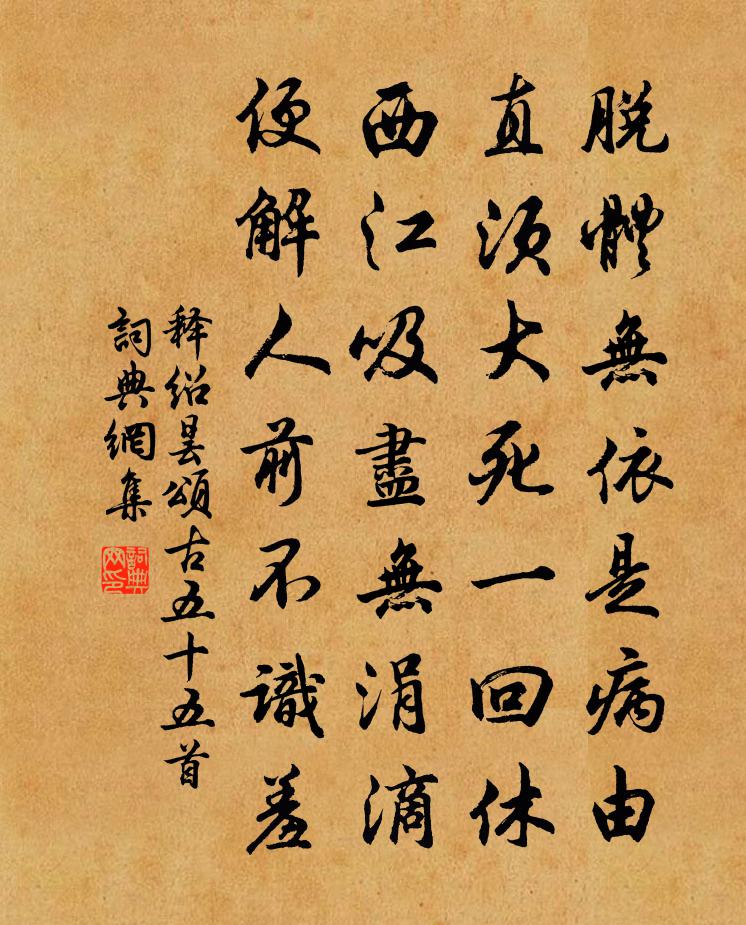 脫體無依是病由
直須大死一回休
西江吸盡無涓滴
便解人前不識羞
释绍昙頌古五十五首
詞典網集
詞典網印